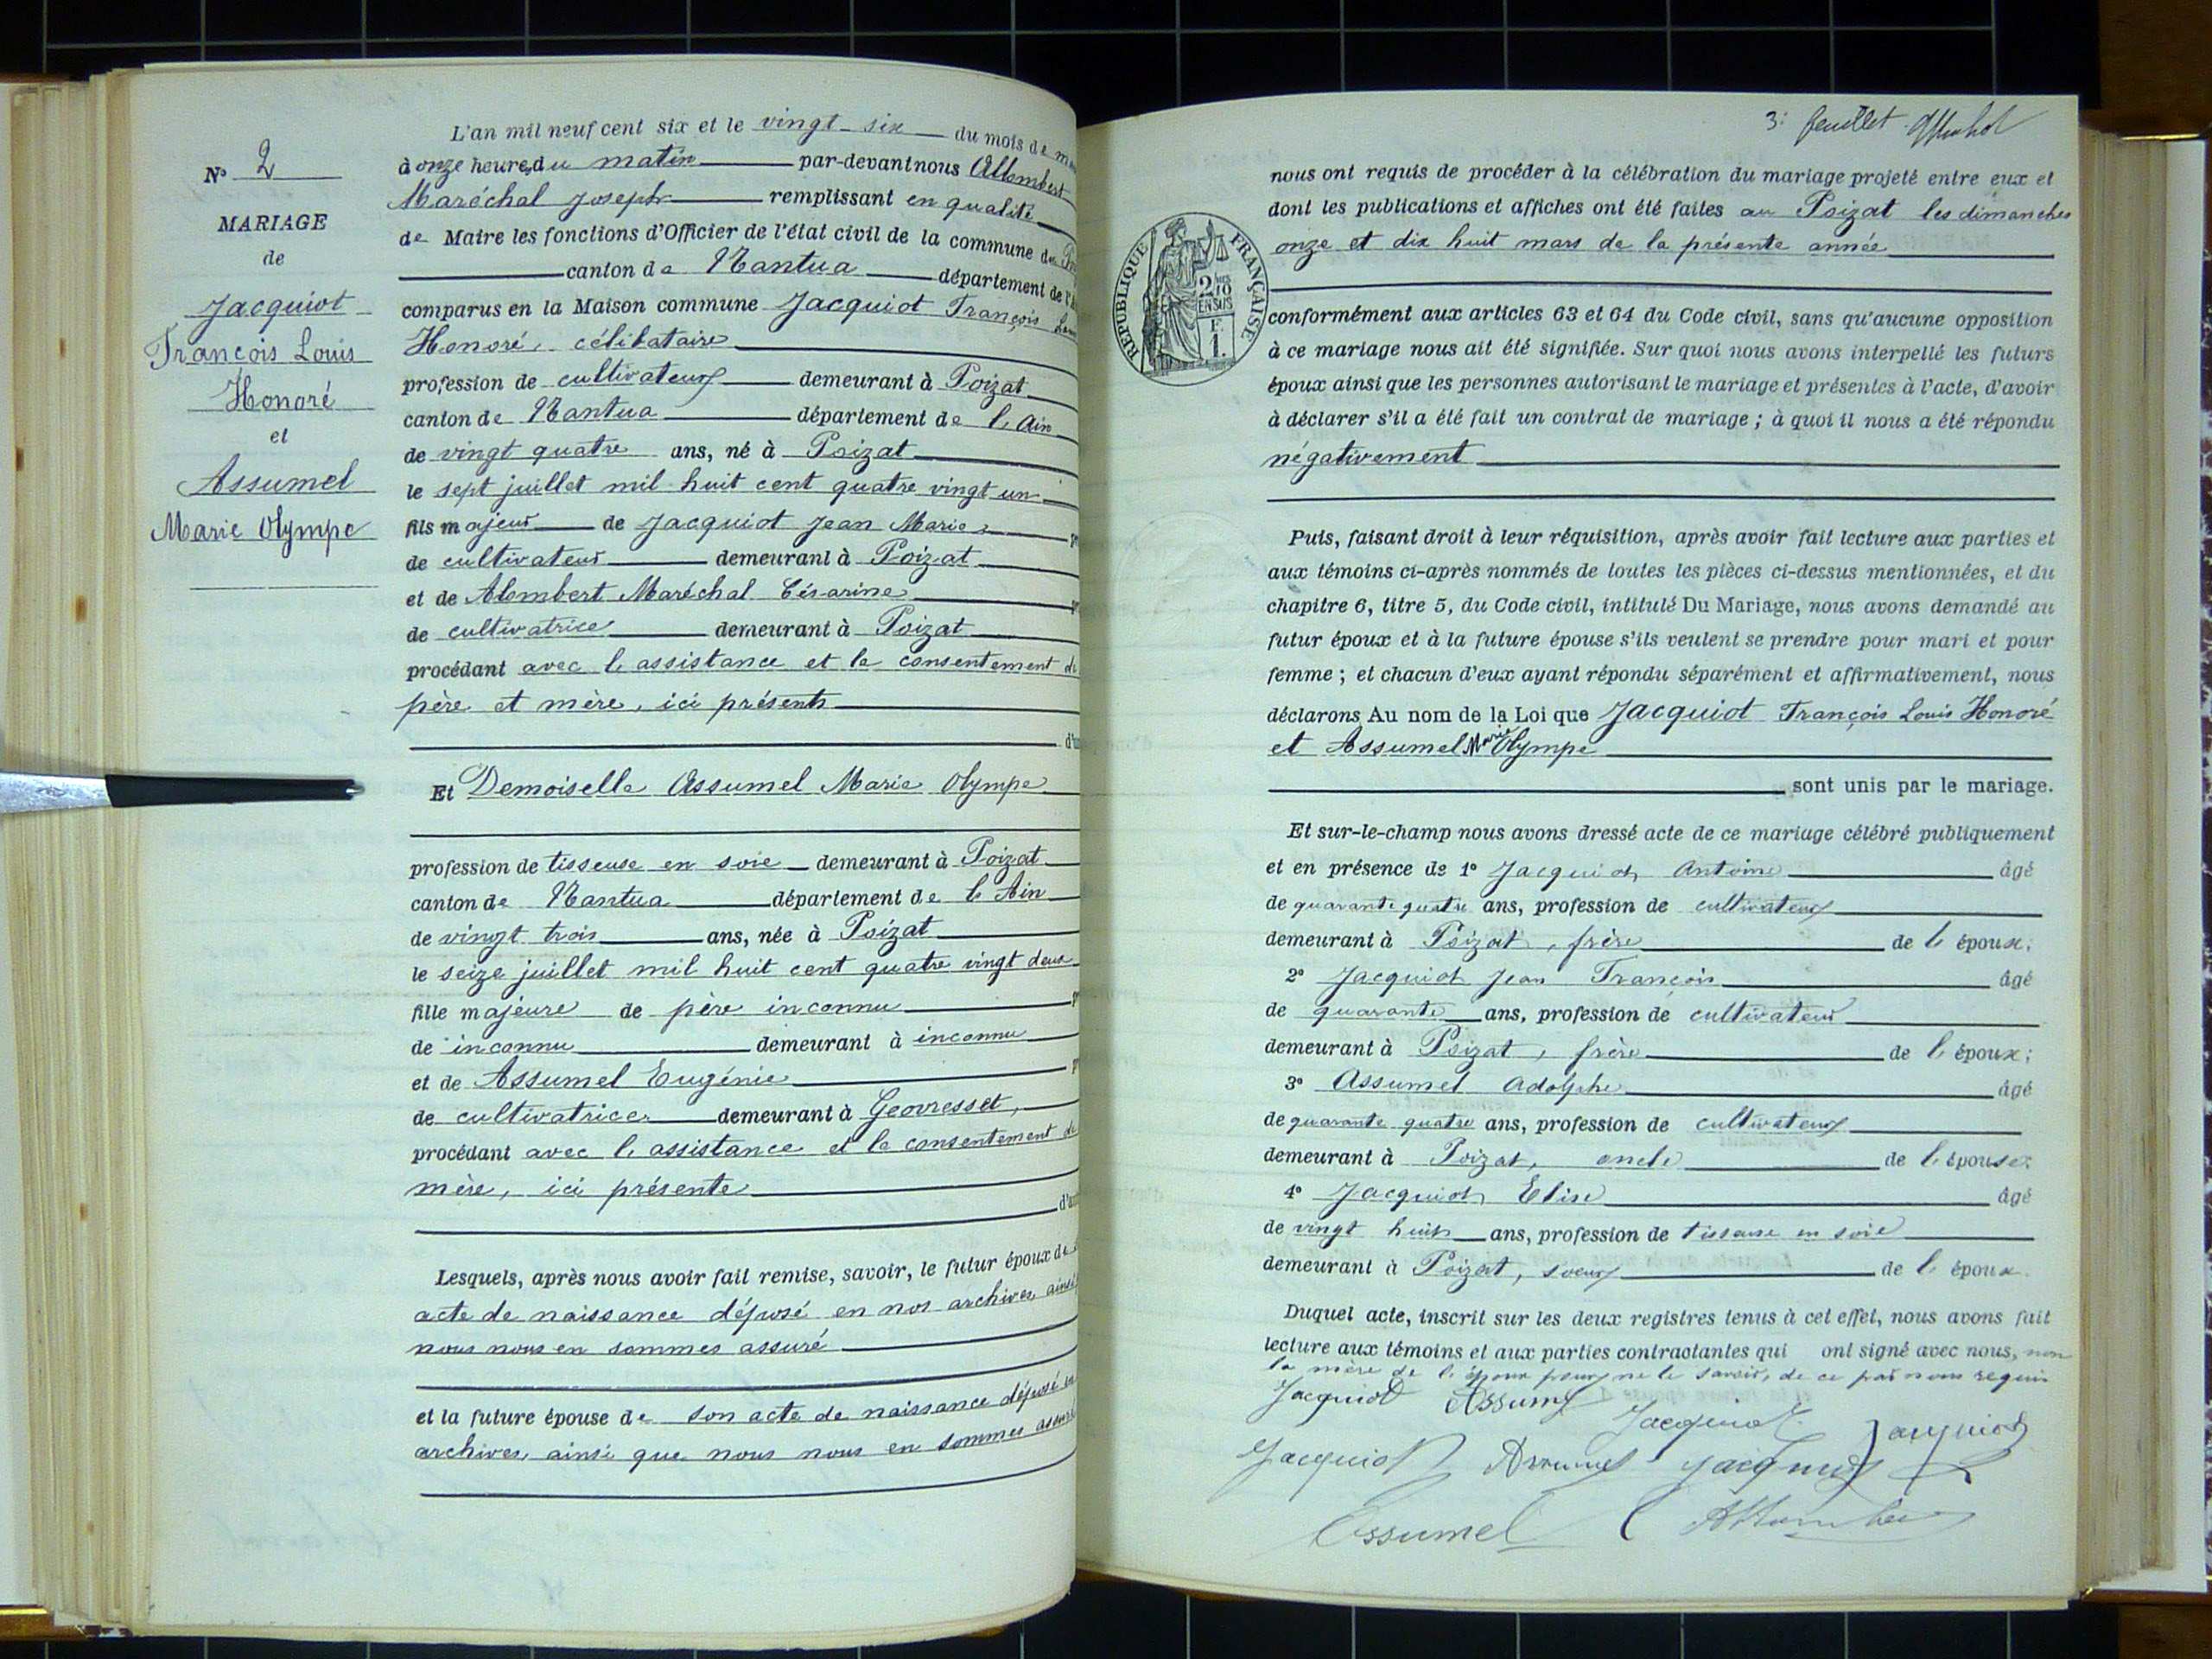 N° 2
MARIAGE
de
Jacquiot
François Louis
Honoré
et
Assumel
Marie Olympe
L'an mil neuf cent six et le vingt-six du mois de
à onze heures du matin par-devant nous Allombert
Maréchal Joseph remplissant en qualité
de Maire les fonctions d'Officier de l'état civil de la commune du
canton de Nantua département de
comparus en la Maison commune Jacquiot François
Honoré, célibataire
profession de cultivateur demeurant à Poizat
canton de Nantua département de l'Ain
de vingt quatre ans, né à Poizat
le sept juillet mil huit cent quatre vingt un
fils majeur de Jacquiot Jean Marie
de cultivateur demeurant à Poizat
et de Alombert Maréchal Césarine
de cultivatrice demeurant à Poizat
procédant avec l'assistance et le consentement de
père et mère, ici présents
Et Demoiselle Assumel Marie Olympe
profession de tisseuse en soie demeurant à Poizat
canton de Nantua département de l'Ain
de vingt trois ans, née à Poizat
le seize juillet mil huit cent quatre vingt deux
fille majeure de père inconnu
de inconnu demeurant à inconnu
et de Assumel Eugénie
de cultivatrice demeurant à Geovresset,
procédant avec l'assistance et le consentement de
mère, ici présente
Lesquels, après nous avoir fait remise, savoir, le futur époux de
acte de naissance déposé en nos archives ainsi
nous nous en sommes assuré
et la future épouse de son acte de naissance déposé en
archives, ainsi que nous nous en sommes assuré
3e feuillet
RÉPUBLIQUE FRANÇAISE
2/10 EN SUS
F.
1.
nous ont requis de procéder à la célébration du mariage projeté entre eux et
dont les publications et affiches ont été faites au Poizat les dimanches
onze et dix huit mars de la présente année
conformément aux articles 63 et 64 du Code civil, sans qu'aucune opposition
à ce mariage nous ait été signifiée. Sur quoi nous avons interpellé les futurs
époux ainsi que les personnes autorisant le mariage et présentes à l'acte, d'avoir
à déclarer s'il a été fait un contrat de mariage ; à quoi il nous a été répondu
négativement
Puis, faisant droit à leur réquisition, après avoir fait lecture aux parties et
aux témoins ci-après nommés de toutes les pièces ci-dessus mentionnées, et du
chapitre 6, titre 5, du Code civil, intitulé Du Mariage, nous avons demandé au
futur époux et à la future épouse s'ils veulent se prendre pour mari et pour
femme ; et chacun d'eux ayant répondu séparément et affirmativement, nous
déclarons Au nom de la Loi que Jacquiot François Louis Honoré
et Assumel Marie Olympe
sont unis par le mariage.
Et sur-le-champ nous avons dressé acte de ce mariage célébré publiquement
et en présence de 1° Jacquiot Antoine âgé
de quarante quatre ans, profession de cultivateur
demeurant à Poizat, frère de l'époux;
2° Jacquiot Jean François âgé
de quarante ans, profession de cultivateur
demeurant à Poizat, frère de l'époux;
3° Assumel Adolphe âgé
de quarante quatre ans, profession de cultivateur
demeurant à Poizat, oncle de l'épouse;
4° Jacquiot Elise âgé
de vingt huit ans, profession de tisseuse en soie
demeurant à Poizat, soeur de l'époux.
Duquel acte, inscrit sur les deux registres tenus à cet effet, nous avons fait
lecture aux témoins et aux parties contractantes qui ont signé avec nous, non
la mère de l'époux pour ne le savoir, de ce par nous requis
Jacquiot Assumel Jacquiot Jacquiot
Jacquiot Assumel Jacquiot
Assumel Allombert